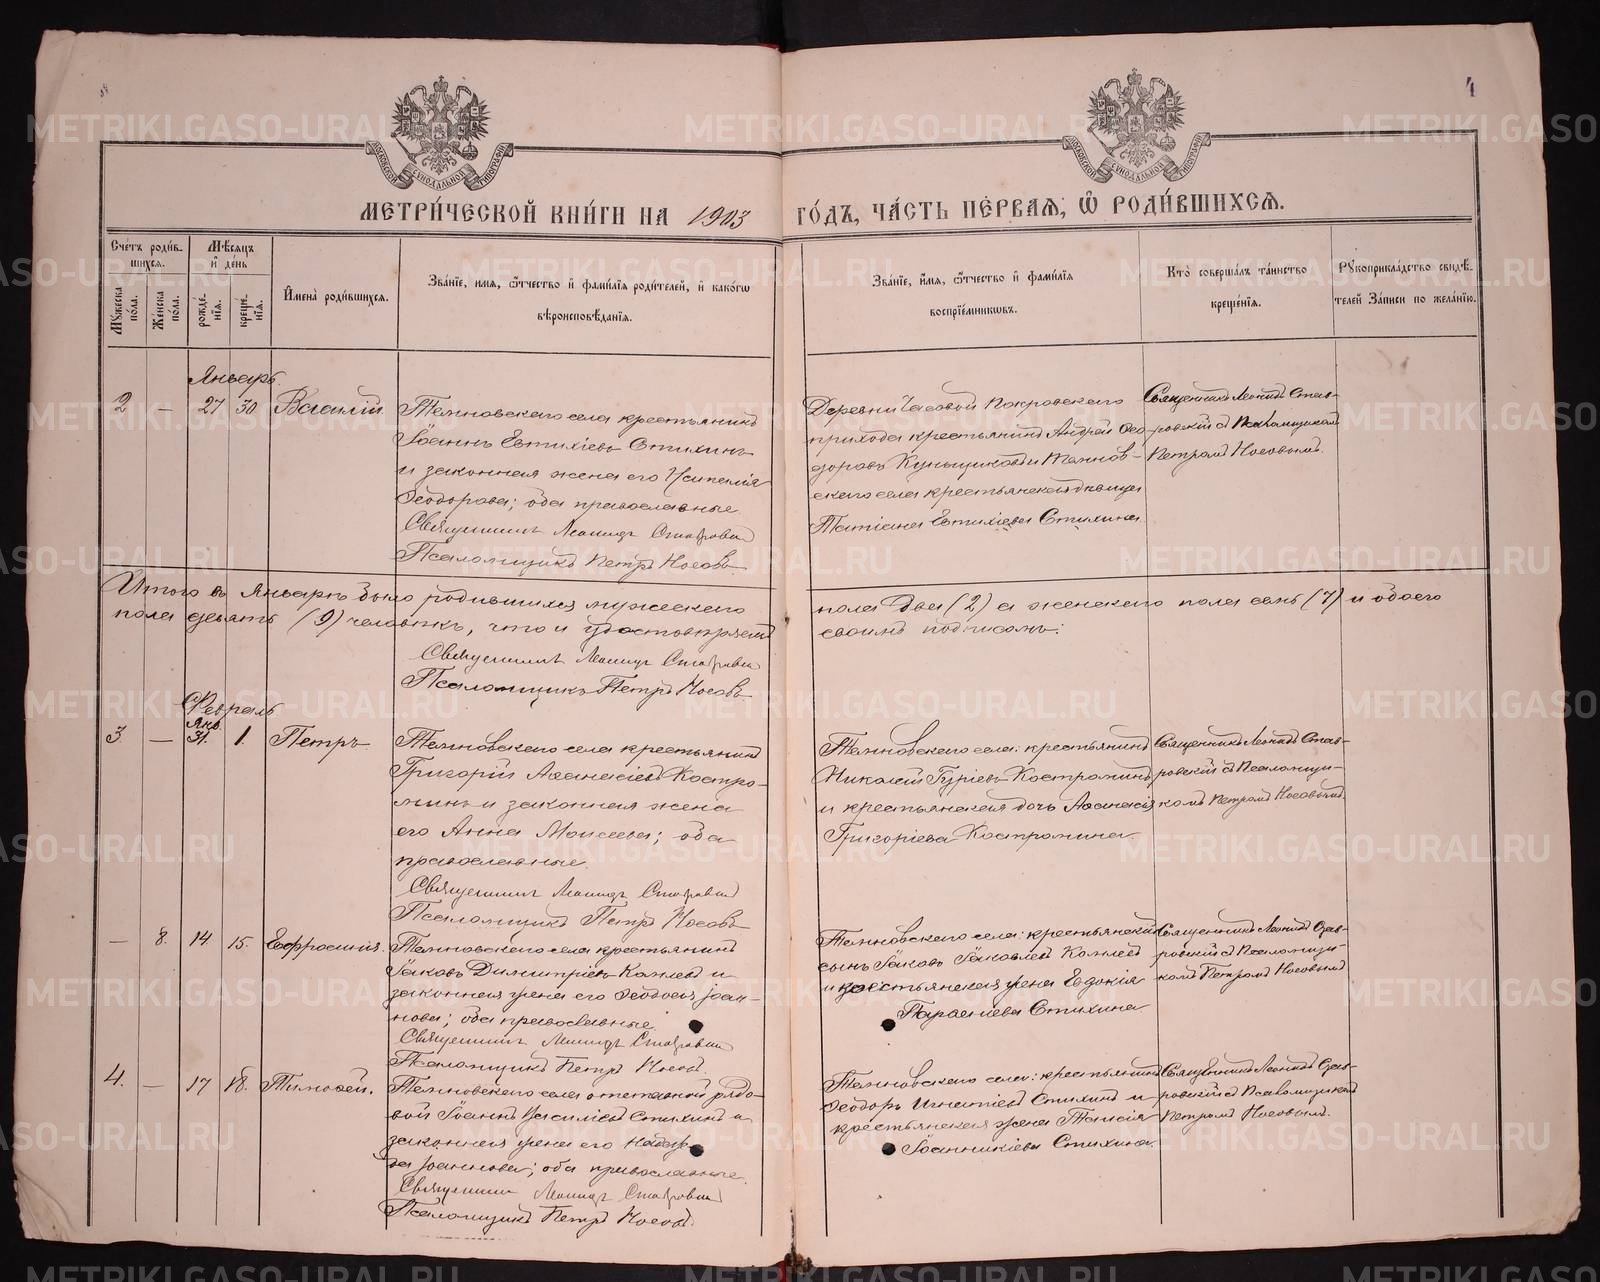 4
МОСКОВСКОЙ СѴНОДАЛЬНОЙ ТИПОГРАФІИ
МОСКОВСКОЙ СѴНОДАЛЬНОЙ ТИПОГРАФІИ
МЕТРИ́ЧЕСКОЙ КНИ́ГИ НА 1903 ГО́ДЪ, ЧА́СТЬ ПЕ́РВАЯ, Ѡ҆ РОДИ́ВШИХСЯ.
Сче́тъ роди́в-
шихся.
Мꙋ́жеска по́ла.
Же́нска по́ла.
Мѣ́сяцъ
и҆ де́нь
рожде́нїя.
креще́нїя.
И҆мена̀ роди́вшихся.
Зва́нїе, и҆́мя, ѻ҆́тчество и҆ фами́лїя роди́телей, и҆ како́гѡ
вѣроисповѣ́данїя.
Зва́нїе, и҆́мя, ѻ҆́тчество и҆ фами́лїя
воспрїе́мникѡвъ.
Кто̀ соверша́лъ та́инство
креще́нїя.
Рꙋкоприкла́дство свидѣ́-
телей За́писи по жела́нїю.
Январь.
2 — 27 30 Василій.
Темновскаго села крестьянинъ
Іоаннъ Евтихіевъ Стихинъ
и законная жена его
Ѳеодорова; оба православные
Священникъ Леонидъ Ставровскій
Псаломщикъ Петръ Носовъ
Деревни Часовой Покровскаго
прихода крестьянинъ Андрей Ѳео-
доровъ и Темнов-
скаго села крестьянская дѣвица
Татіана Евтихіева Стихина
Священникъ Леонидъ Став-
ровскій съ Псаломщикомъ
Петромъ Носовымъ.
Итого въ Январѣ было родившихся мужескаго пола два (2) а женскаго пола семь (7) и обоего
пола девять (9) человѣкъ, что и удостовѣряемъ своимъ подписомъ:
Священникъ Леонидъ Ставровскій
Псаломщикъ Петръ Носовъ
Февраль
Янв.
3 — 31. 1. Петръ
Темновскаго села крестьянинъ
Григорій Аѳанасіевъ Костро-
минъ и законная жена
его Анна Моисеева; оба
православные
Священникъ Леонидъ Ставровскій
Псаломщикъ Петръ Носовъ
Темновскаго села: крестьянинъ
Николай Гуріевъ Костроминъ
и крестьянская дочь Аѳанасія
Григоріева Костромина
Священникъ Леонидъ Став-
ровскій съ Псаломщи-
комъ Петромъ Носовымъ
— 8. 14. 15. Ефросинія.
Темновскаго села крестьянинъ
Іаковъ Димитріевъ и
законная жена его Ѳеодосія Іоан-
нова; оба православные
Священникъ Леонидъ Ставровскій
Псаломщикъ Петръ Носовъ.
Темновскаго села: крестьянскій
сынъ Іаковъ Іаковлевъ
и крестьянская жена Евдокія
Парѳеніева Стихина
Священникъ Леонидъ Став-
ровскій съ Псаломщи-
комъ Петромъ Носовымъ
4. — 17 18. Тимоѳей.
Темновскаго села отставной рядо-
вой Іоаннъ Василіевъ Стихинъ и
законная жена его
Іоаннова; оба православные.
Священникъ Леонидъ Ставровскій
Псаломщикъ Петръ Носовъ.
Темновскаго села: крестьянинъ
Ѳеодоръ Игнатіевъ Стихинъ и
крестьянская жена Таисія
Іоанникіева Стихина.
Священникъ Леонидъ Став-
ровскій съ Псаломщикомъ
Петромъ Носовымъ.
METRIKI.GASO-URAL.RU